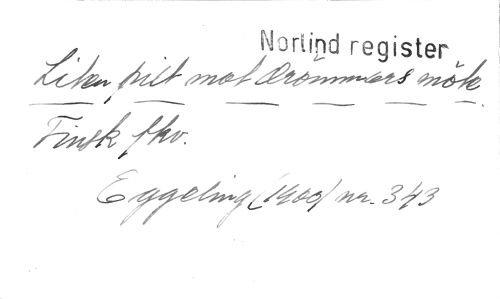 Norlind register
Liten pilt mot drömmars mök
Finsk fkv.
Eggeling (1900) nr. 343